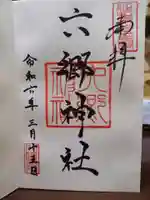 奉拝
六郷神社
令和六年三月十五日